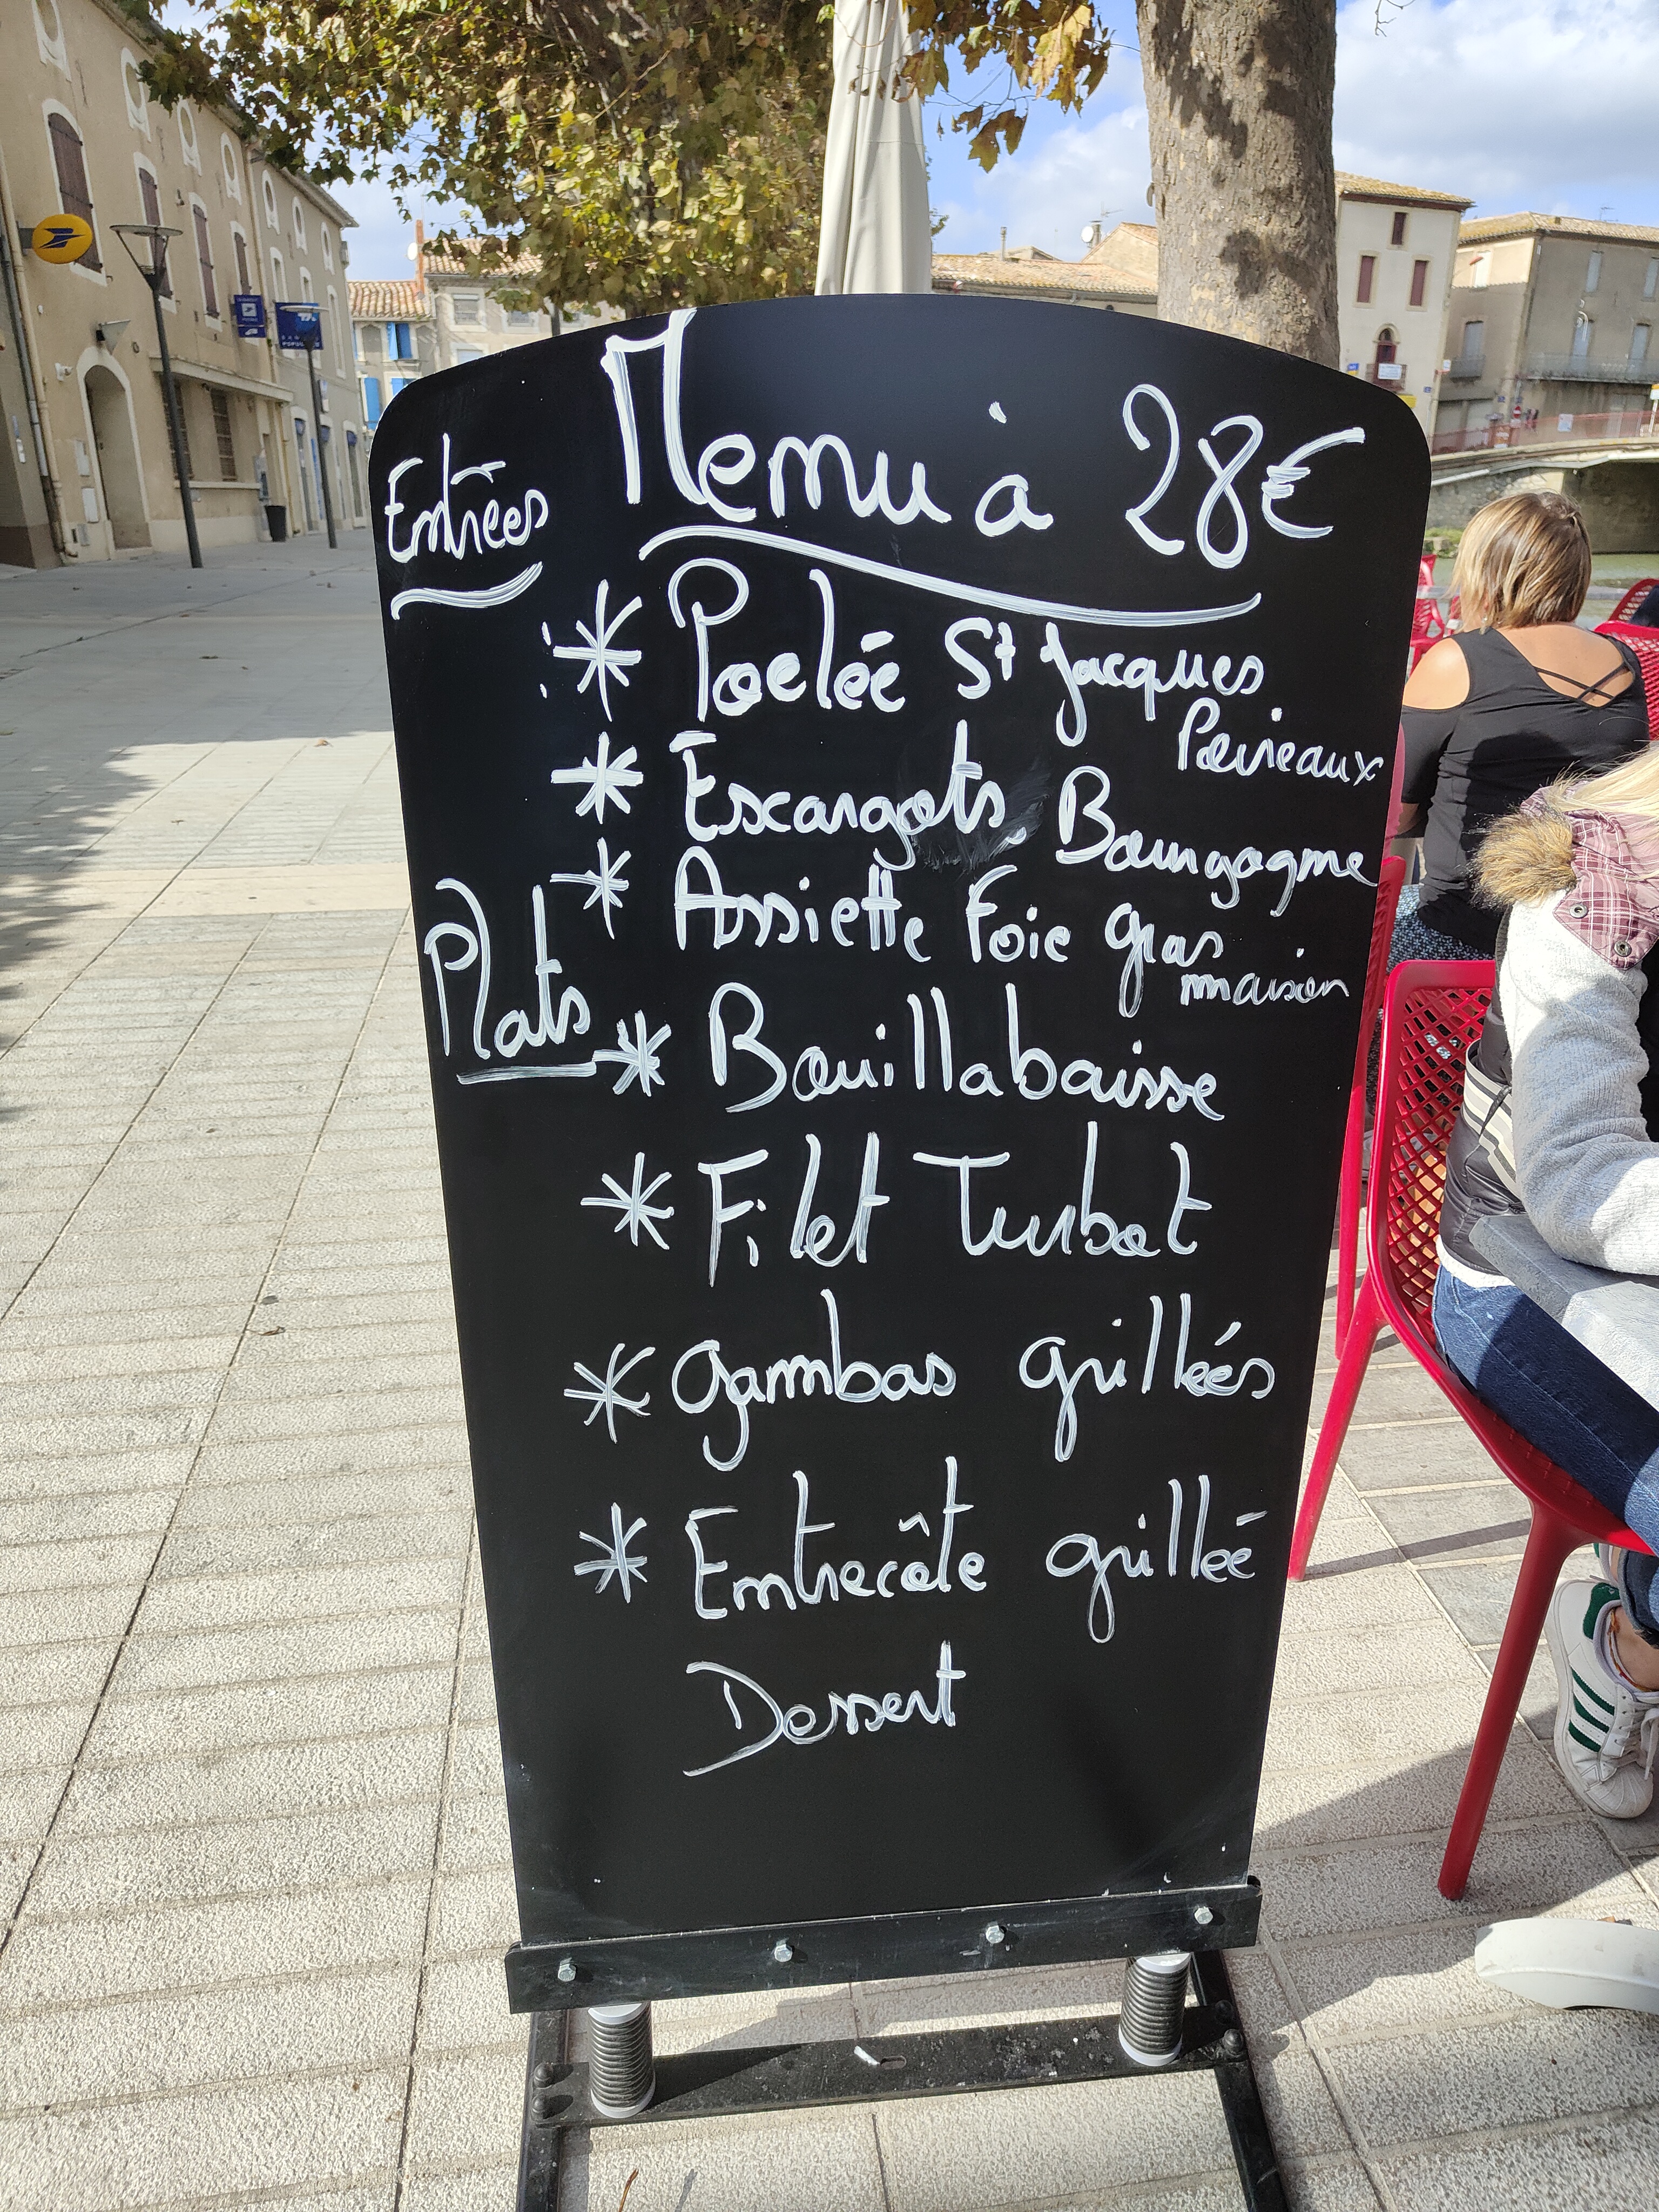 Menu à 28€
Entrées
* Poelée St Jacques
Poireaux
* Escargots Bourgogne
* Assiette Foie gras
maison
Plats
* Bouillabaisse
* Filet Turbot
* Gambas grillées
* Entrecôte grillée
Dessert